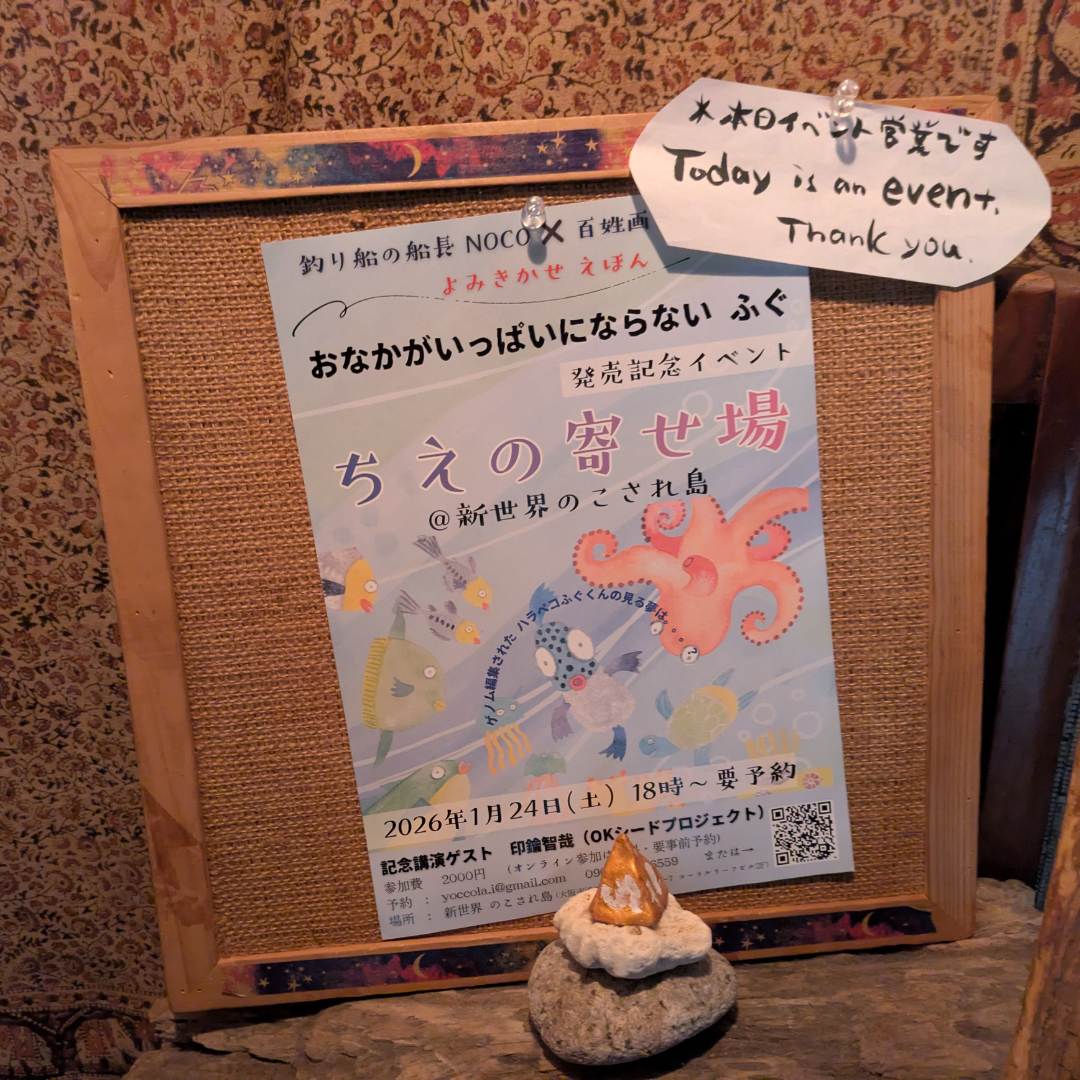 本日イベント営業です
Today is an event.
Thank you.
釣り船の船長 NOCO × 百姓画
よみきかせ えほん
おなかがいっぱいにならない ふぐ
発売記念イベント
ちえの寄せ場
@新世界のこされ島
ゲノム編集された ハラペコふぐくんの見る夢は。。。
2026年1月24日(土) 18時〜要予約
記念講演ゲスト 印鑰智哉(OKシードプロジェクト)
参加費 2000円 (オンライン参加は ・要事前予約)
予約 : yoccola.i@gmail.com 090 6559 または→
場所 : 新世界 のこされ島 (大阪